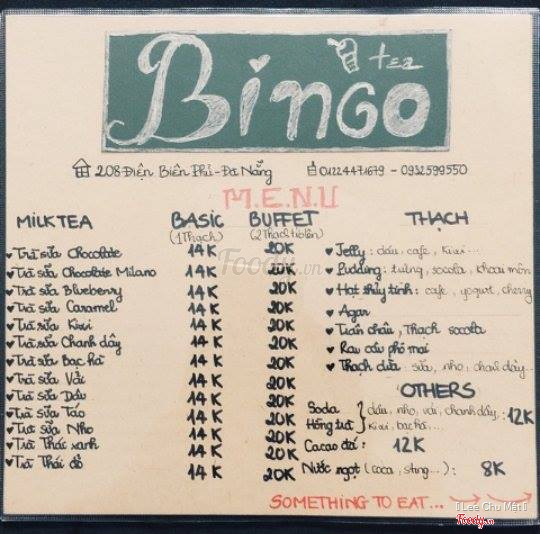 Bingo tea
208 Điện Biên Phủ - Đà Nẵng 01224471679 - 0932599550
M.E.N.U
MILKTEA BASIC BUFFET THẠCH
(1 Thạch) (2 Thạch trở lên)
Trà sữa Chocolate 14K 20K
Trà sữa Chocolate Milano 14K 20K
Trà sữa Blueberry 14K 20K
Trà sữa Caramel 14K 20K
Trà sữa Kiwi 14K 20K
Trà sữa Chanh dây 14K 20K
Trà sữa Bạc hà 14K 20K
Trà sữa Vải 14K 20K
Trà sữa Dâu 14K 20K
Trà sữa Táo 14K 20K
Trà sữa Nho 14K 20K
Trà Thái xanh 14K 20K
Trà Thái đỏ 14K 20K
Jelly : dâu, cafe, kiwi...
Pudding : trứng, socola, khoai môn
Hạt thủy tinh : cafe, yogurt, cherry
Agar
Trân châu, Thạch socola
Rau câu phô mai
Thạch dừa : sữa, nho, chanh dây...
OTHERS
Soda } dâu, nho, vải, chanh dây, : 12K
Hồng trà } kiwi, bạc hà...
Cacao đá : 12K
Nước ngọt (coca, sting...) : 8K
SOMETHING TO EAT...
Foody.vn
[Lee Chu Mèi]
Foody.vn